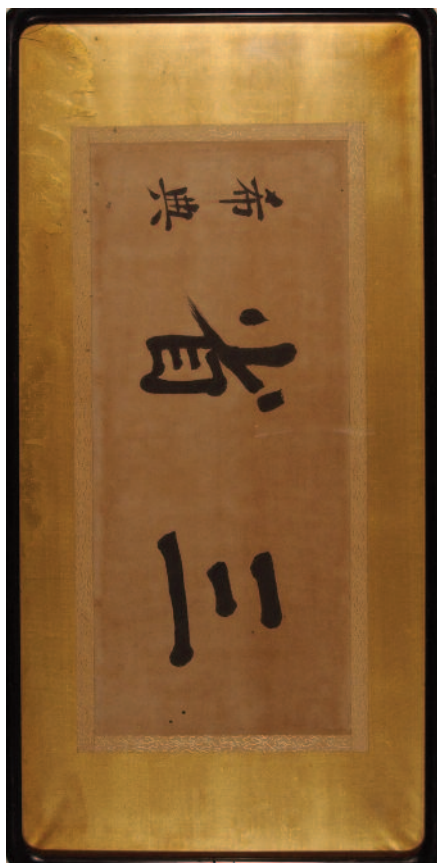 三省
希典